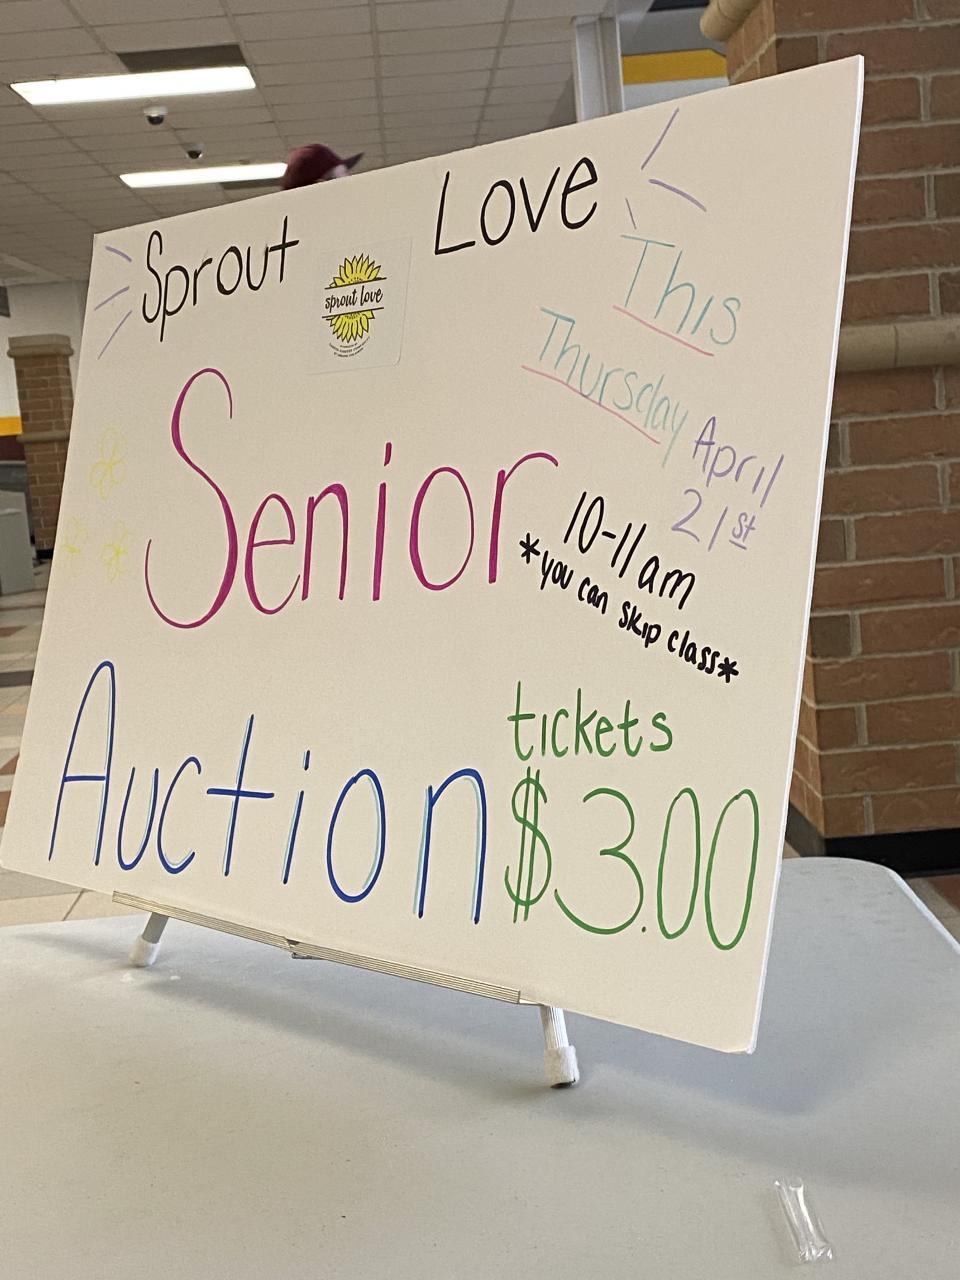 Sprout Love
sprout love
This
Thursday
April
21st
Senior
10-11am
*you can skip class*
Auction
tickets
$3.00